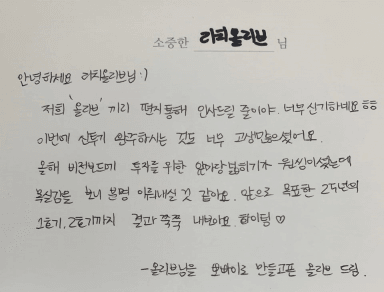 소중한 리치올리브 님
안녕하세요 리치올리브님 :)
저희 '올리브' 끼리 편지통해 인사드릴 줄이야. 너무신기하네요 ㅎㅎ
이번에 신투기 완주하시는 것도 너무 고생많으셨어요.
올해 비전보드에 투자를 위한 앞마당넓히기가 원씽이셨는데
목실감을 보니 분명 이뤄내실 것 같아요. 앞으로 목표한 25년의
1호기, 2호기까지 결과 쭉쭉 내봐요. 화이팅 ♡
- 올리브님을 오바이로 만들고픈 올리브 드림.